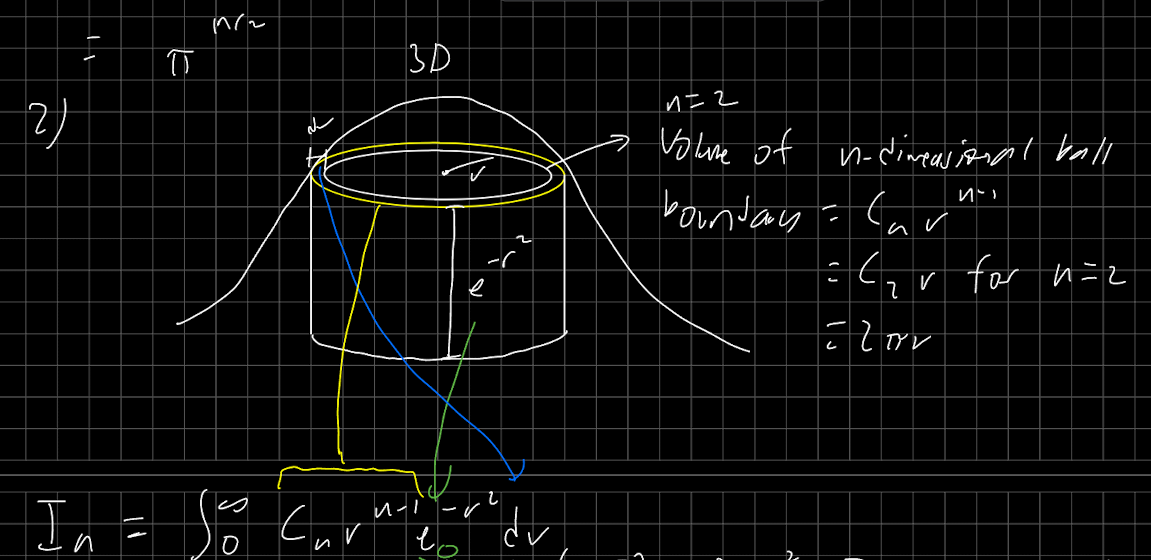 = π^{n/2}
2)
3D
dr
r
e^{-r^2}
n=2
Volume of n-dimensional ball
boundary = C_n r^{n-1}
= C_2 r for n=2
= 2πr
I_n = ∫_0^∞ C_n r^{n-1} e^{-r^2} dr